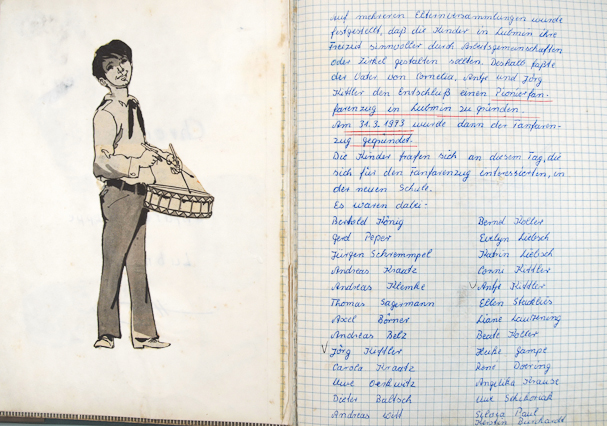 Auf mehreren Elternversammlungen wurde
festgestellt, daß die Kinder in Lubmin ihre
Freizeit sinnvoller durch Arbeitsgemeinschaften
oder Zirkel gestalten sollten. Deshalb faßte
der Vater von Cornelia, Antje und Jörg
Kittler den Entschluß einen Pionierfan-
farenzug in Lubmin zu gründen.
Am 31.3.1973 wurde dann der Fanfaren-
zug gegründet.
Die Kinder trafen sich an diesem Tag, die
sich für den Fanfarenzug interessierten, in
der neuen Schule.
Es waren dabei-
Berthold König
Gerd Peper
Jürgen Schremmpel
Andreas Kraatz
Andreas Klemke
Thomas Sagermann
Axel Börner
Andreas Betz
Jörg Kittler
Carola Kraatz
Uwe
Dieter Baltsch
Andreas Witt
Bernd Koller
Evelyn Liebsch
Katrin Liebsch
Conni Kittler
Antje Kittler
Ellen
Liane
Beate Koller
Heike Gampe
Rene Doering
Angelika Krause
Uwe
Paul
Kerstin Burchardt